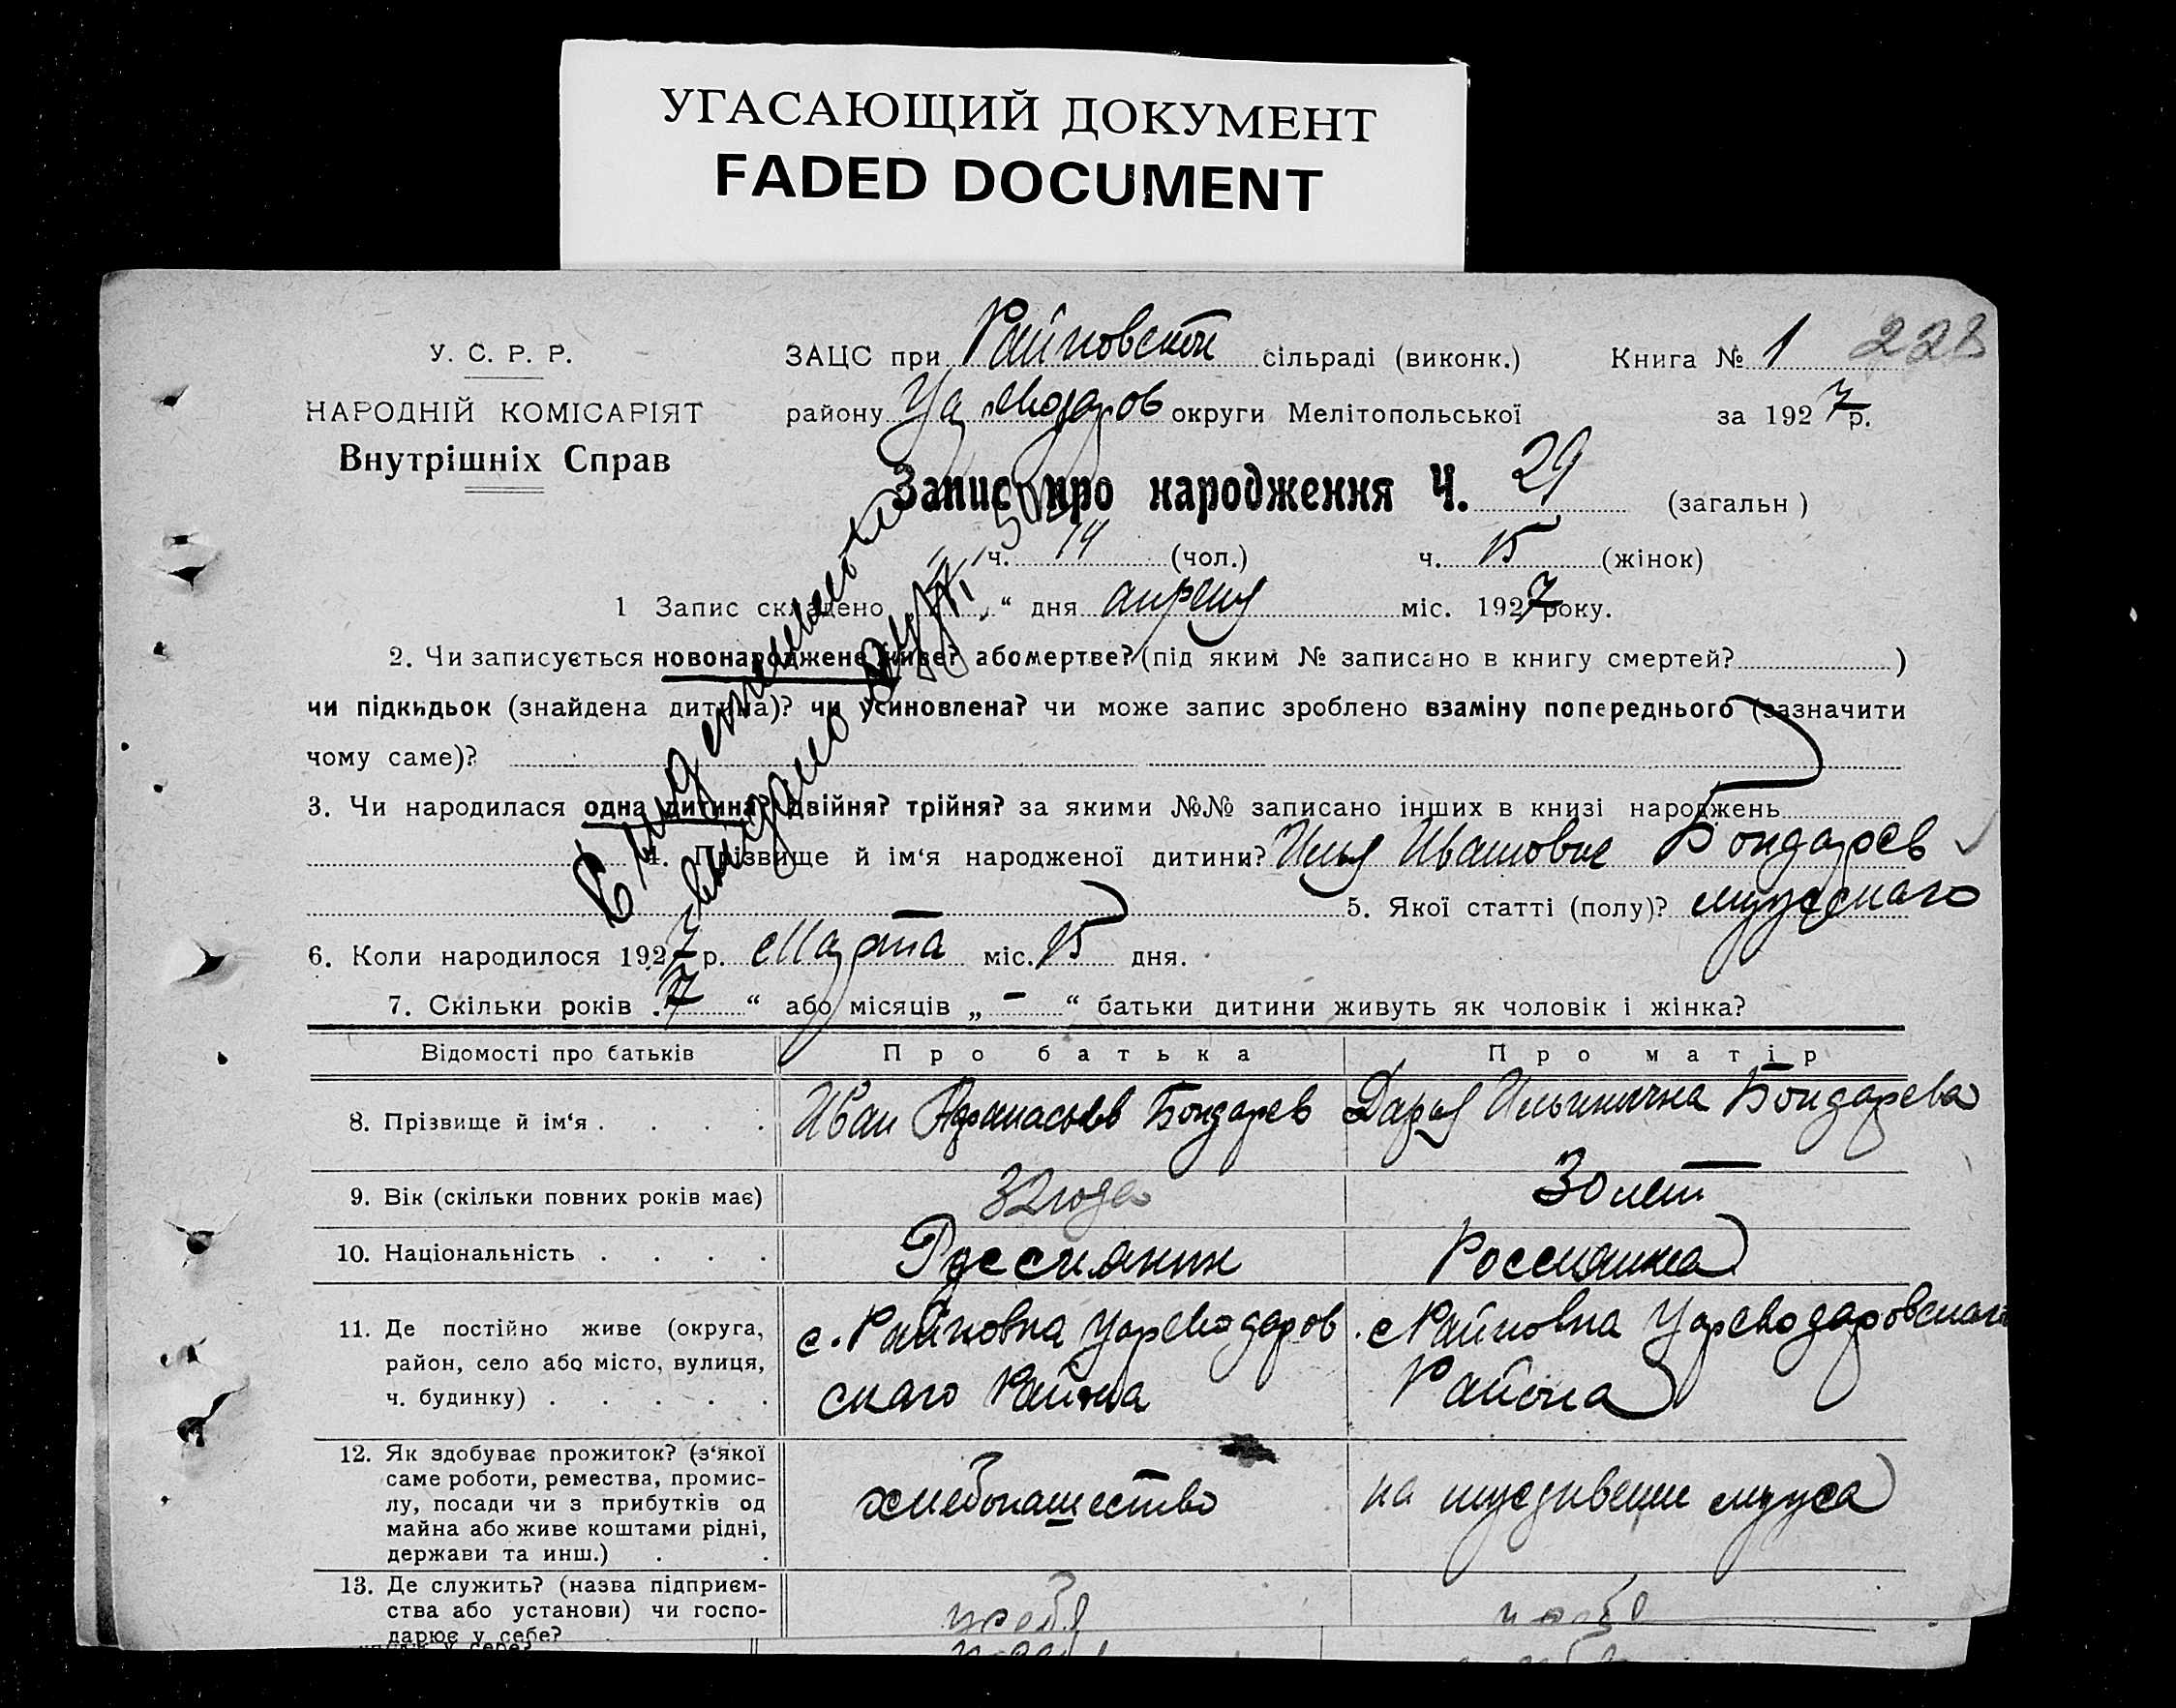 УГАСАЮЩИЙ ДОКУМЕНТ
FADED DOCUMENT
У. С. Р. Р.
НАРОДНІЙ КОМІСАРІЯТ
Внутрішніх Справ
ЗАЦС при Райновской сільраді (виконк.) Книга № 1 228
району округи Мелітопольської за 1927 р.
Запис про народження Ч. 29 (загальн)
ч. 14 (чол.) ч. 15 (жінок)
1 Запис складено “ дня апреля міс. 1927 року.
2. Чи записується новонароджене живе? або мертве? (під яким № записано в книгу смертей? )
чи підкидьок (знайдена дитина)? чи усиновлена? чи може запис зроблено взаміну попереднього (зазначити
чому саме)?
3. Чи народилася одна дитина? двійня? трійня? за якими №№ записано інших в книзі народжень
4. Прізвище й ім‘я народженої дитини? Илья Иванович Бондарев
5. Якої статті (полу)? мужскаго
6. Коли народилося 1927 р. Марта міс. 15 дня.
7. Скільки років 7 “ або місяців „ — “ батьки дитини живуть як чоловік і жінка?
Відомості про батьків Про батька Про матір
8. Прізвище й ім‘я . . . . Иван Афанасьев Бондарев Дарья Ильинична Бондарева
9. Вік (скільки повних років має) 32 года 30 лет
10. Національність . . . . Россиянин Россиянка
11. Де постійно живе (округа, с. Райновка Цареводаров с Райновка Цареводаровскаго
район, село або місто, вулиця,
ч. будинку) . . . . . скаго Района Района
12. Як здобуває прожиток? (з‘якої
саме роботи, ремества, промис-
лу, посади чи з прибутків од хлебопашество на иждивении мужа
майна або живе коштами рідні,
держави та инш.) . .
13. Де служить? (назва підприєм-
ства або установи) чи госпо-
дарює у себе?